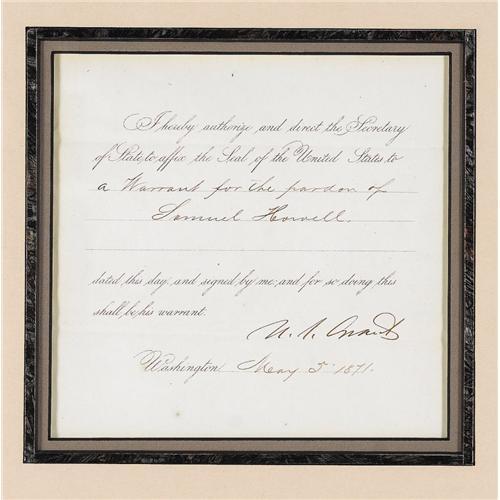 I hereby authorize and direct the Secretary
of State to affix the Seal of the United States to
a Warrant for the pardon of
Samuel Howell.
dated this day, and signed by me; and for so doing this
shall be his warrant.
U. S. Grant
Washington, May 5th 1871.